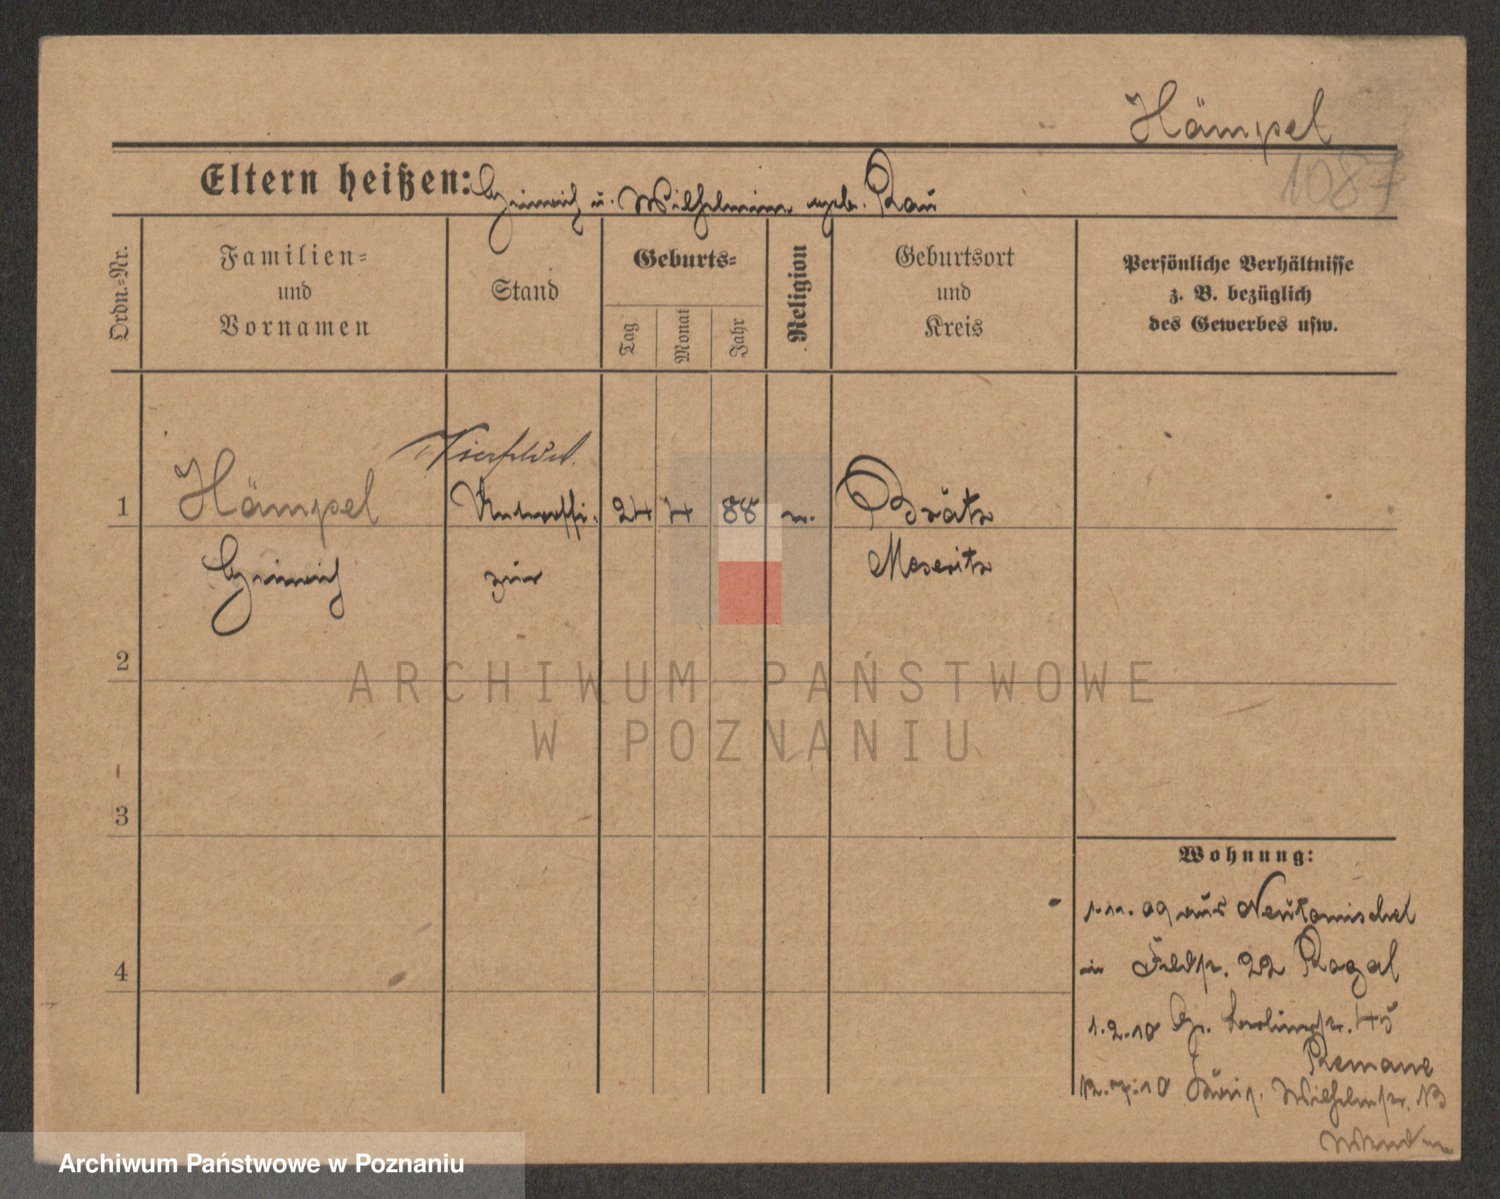 Hämpel
1087
Eltern heißen: Heinrich u. Wilhelmine geb. Rau
Ordn.=Nr.
Familien=
und
Vornamen
Stand
Geburts=
Tag
Monat
Jahr
Religion
Geburtsort
und
Kreis
Persönliche Verhältnisse
z. B. bezüglich
des Gewerbes usw.
1 Hämpel 24 4 88 Brätz
Heinrich Meseritz
2
ARCHIWUM PAŃSTWOWE
W POZNANIU
3
4
Wohnung:
1.11.09 aus Neutomischel
in Feldstr. 22 Rogal
1.2.10 45
Remane
10 Wilhelmstr. 13
Archiwum Państwowe w Poznaniu